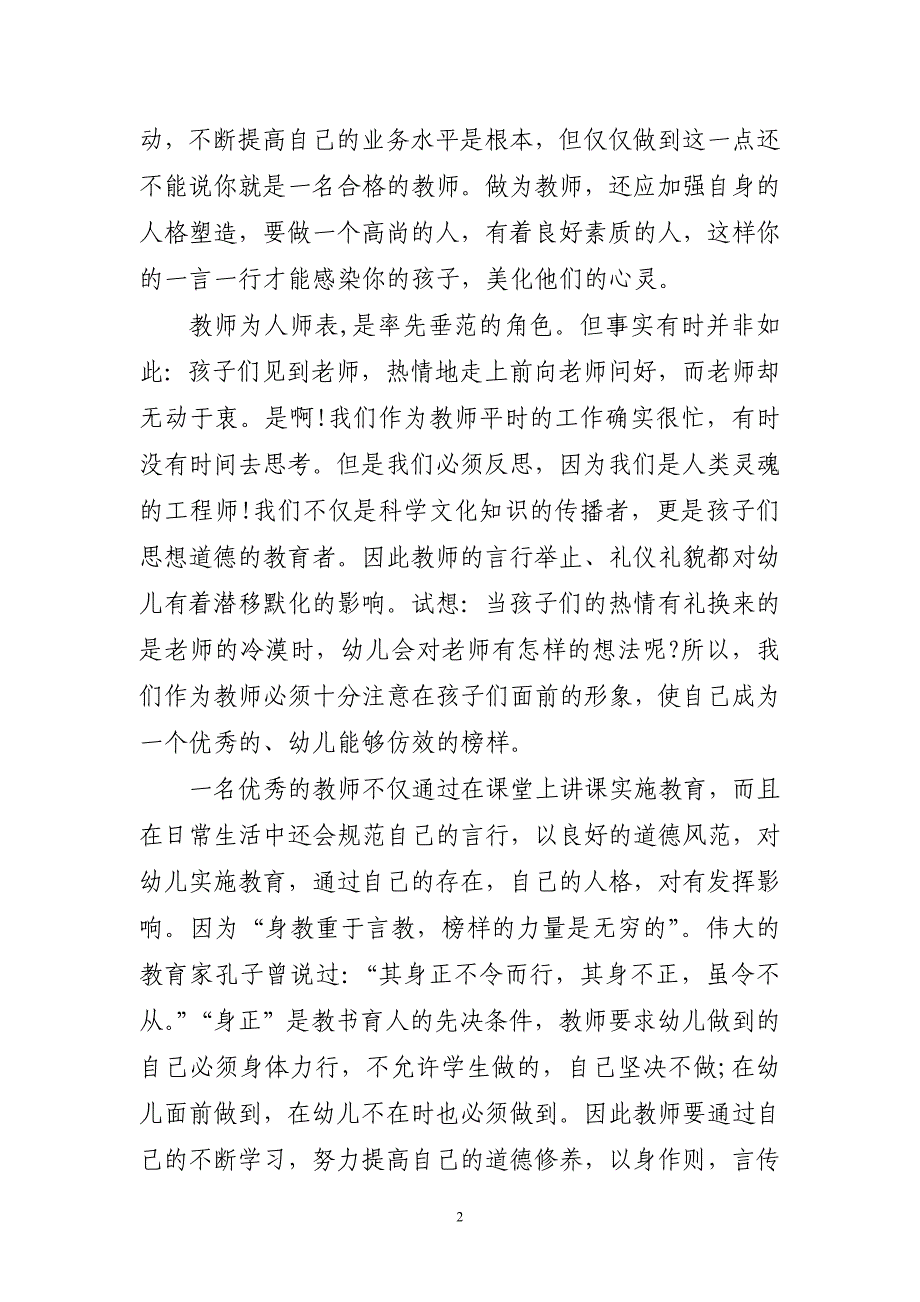 动，不断提高自己的业务水平是根本，但仅仅做到这一点还
不能说你就是一名合格的教师。做为教师，还应加强自身的
人格塑造，要做一个高尚的人，有着良好素质的人，这样你
的一言一行才能感染你的孩子，美化他们的心灵。
教师为人师表,是率先垂范的角色。但事实有时并非如
此：孩子们见到老师，热情地走上前向老师问好，而老师却
无动于衷。是啊!我们作为教师平时的工作确实很忙，有时
没有时间去思考。但是我们必须反思，因为我们是人类灵魂
的工程师!我们不仅是科学文化知识的传播者，更是孩子们
思想道德的教育者。因此教师的言行举止、礼仪礼貌都对幼
儿有着潜移默化的影响。试想：当孩子们的热情有礼换来的
是老师的冷漠时，幼儿会对老师有怎样的想法呢?所以，我
们作为教师必须十分注意在孩子们面前的形象，使自己成为
一个优秀的、幼儿能够仿效的榜样。
一名优秀的教师不仅通过在课堂上讲课实施教育，而且
在日常生活中还会规范自己的言行，以良好的道德风范，对
幼儿实施教育，通过自己的存在，自己的人格，对有发挥影
响。因为“身教重于言教，榜样的力量是无穷的”。伟大的
教育家孔子曾说过：“其身正不令而行，其身不正，虽令不
从。”“身正”是教书育人的先决条件，教师要求幼儿做到的
自己必须身体力行，不允许学生做的，自己坚决不做;在幼
儿面前做到，在幼儿不在时也必须做到。因此教师要通过自
己的不断学习，努力提高自己的道德修养，以身作则，言传
2